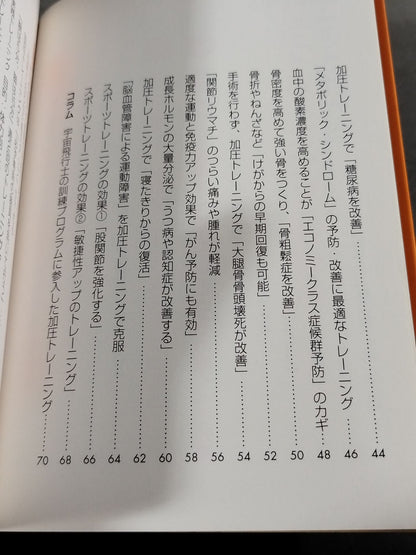 加圧トレーニングで「糖尿病を改善」……44
「メタボリック・シンドローム」の予防・改善に最適なトレーニング……46
血中の酸素濃度を高めることが「エコノミークラス症候群予防」のカギ……48
骨密度を高めて強い骨をつくり、「骨粗鬆症を改善」……50
骨折やねんざなど「けがからの早期回復も可能」……52
手術を行わず、加圧トレーニングで「大腿骨骨頭壊死が改善」……54
「関節リウマチ」のつらい痛みや腫れが軽減……56
適度な運動と免疫力アップ効果で「がん予防にも有効」……58
成長ホルモンの大量分泌で「うつ病や認知症が改善する」……60
加圧トレーニングで「寝たきりからの復活」……62
「脳血管障害による運動障害」を加圧トレーニングで克服……64
スポーツトレーニングの効果①「股関節を強化する」……66
スポーツトレーニングの効果②「敏捷性アップのトレーニング」……68
コラム 宇宙飛行士の訓練プログラムに参入した加圧トレーニング……70